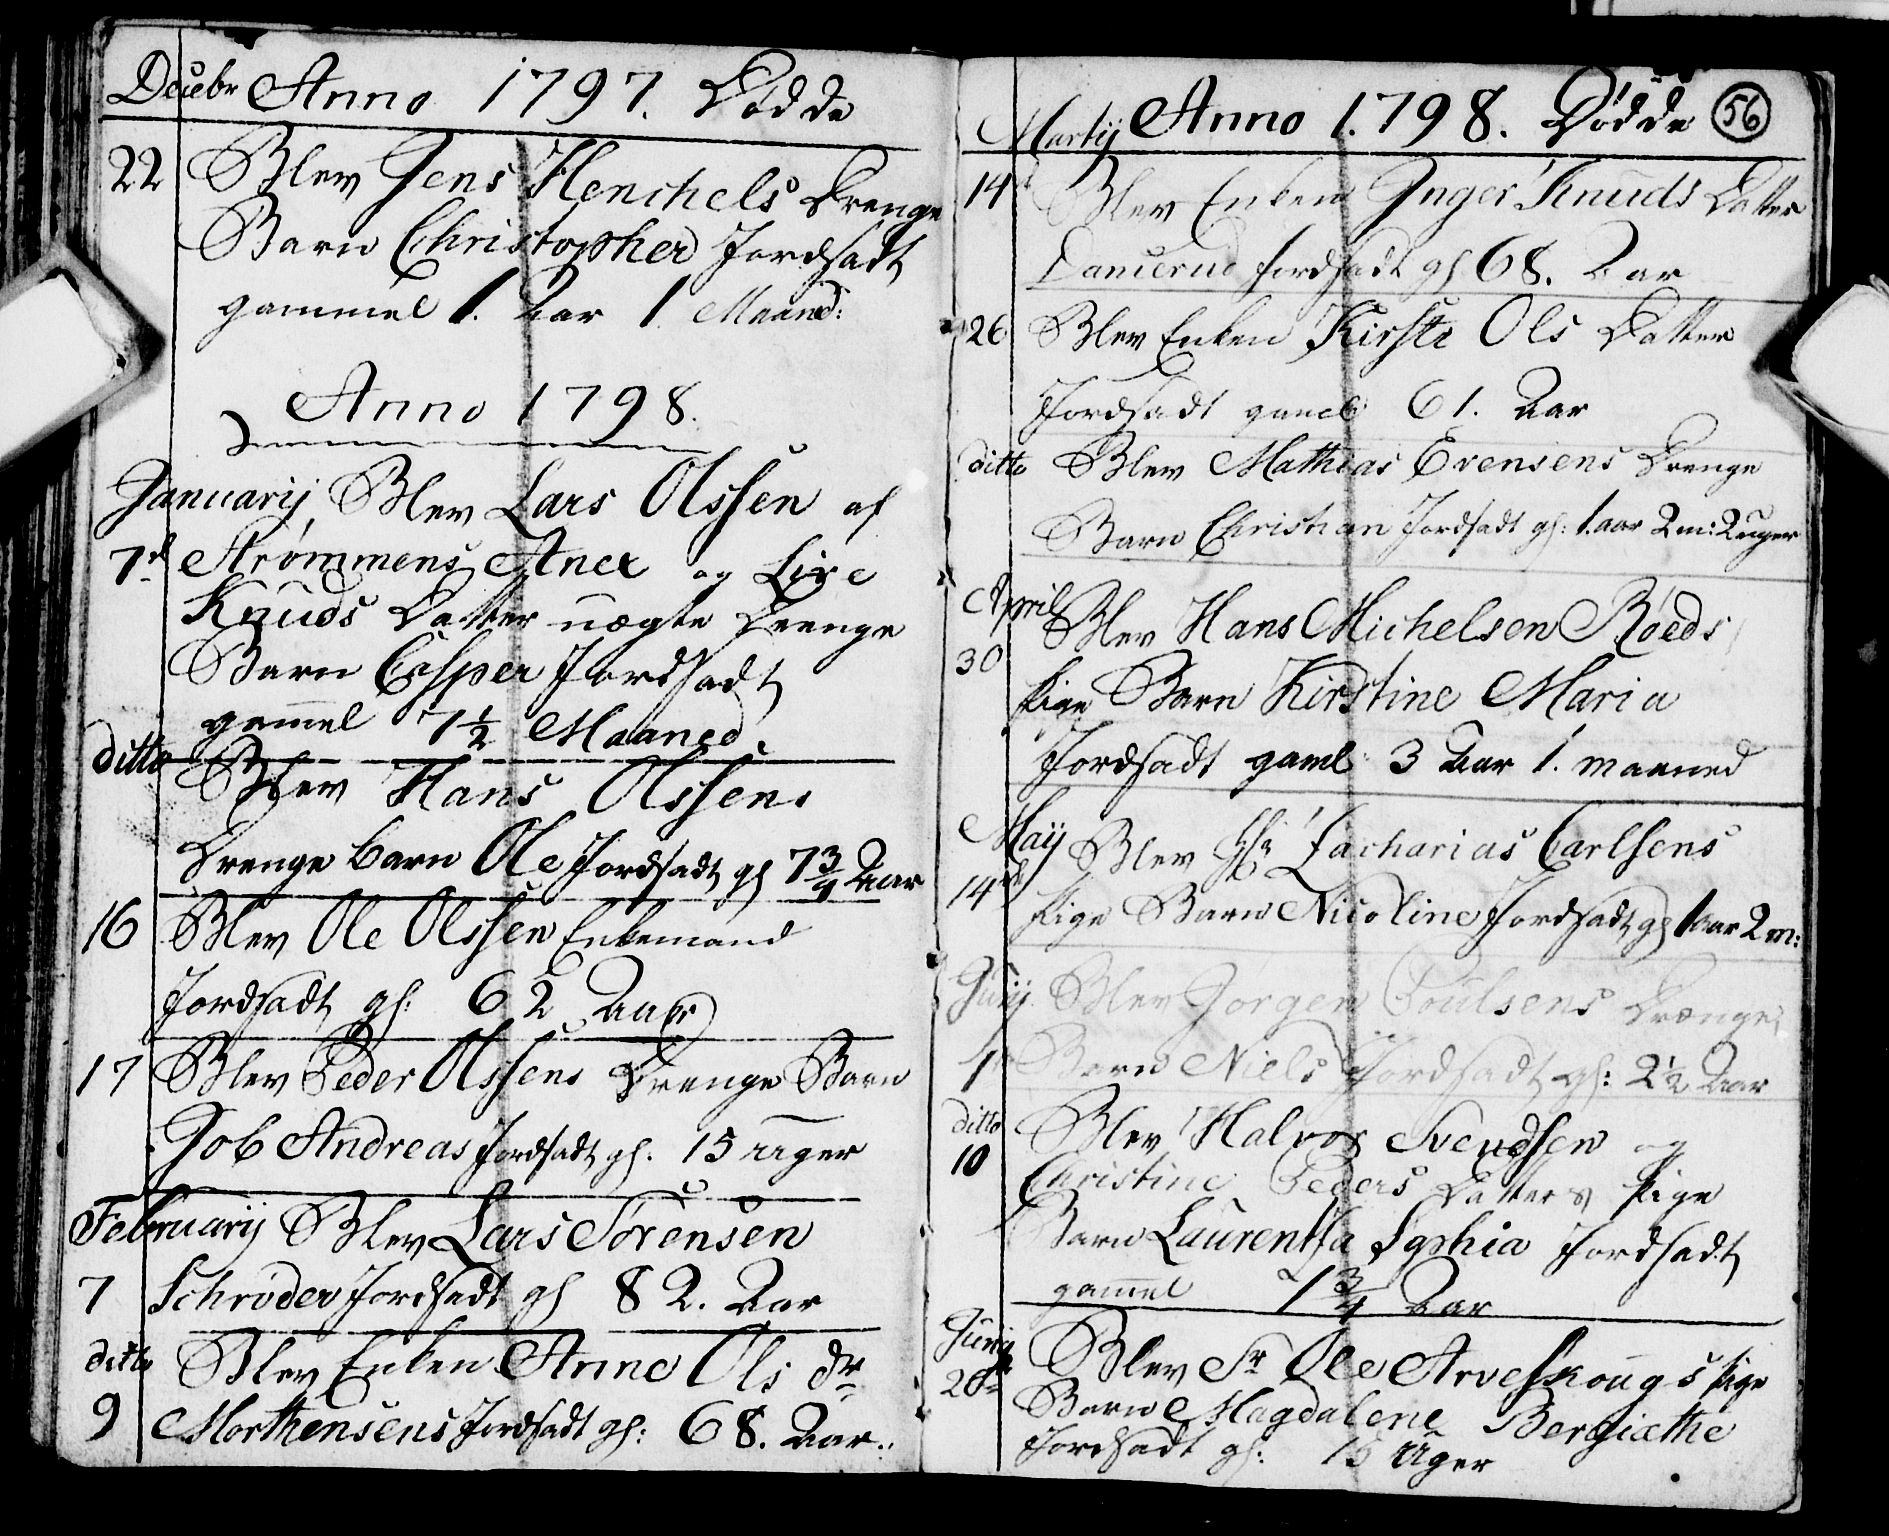 Decebr Anno 1797. Dødde
22 Blev Jens Henchels Drenge
Barn Christopher Jordsadt
gammel 1. Aar 1 Maaned:
Anno 1798.
Januarij Blev Lars Olssen af
7d Strømmens og Live
Knuds Datter uægte Drenge
Barn Casper Jordsadt
gam̄el 7½ Maaned.
ditto Blev Hans Olssens
Drenge Barn Ole Jordsadt gl 7¾ Aar
16 Blev Ole Olssen Enkemand
Jordsadt gl: 62 Aar
17 Blev Peder Olssens Drenge Barn
Job Andreas Jordsadt gl. 15 uger
Februarij Blev Lars Sørensen
7 Schrøder Jordsadt gl 82. Aar
ditto Blev Enken Anne Ols dr
9 Morthensens Jordsadt gl: 68. Aar.
Martij Anno 1798. Dødde 56
14d Blev Enken Inger Knuds Datter
Jordsadt gl 68. Aar
26 Blev Enken Kirste Ols Datter
Jordsadt gamel 61. Aar
ditto Blev Mathias Evensens Drenge
Barn Christian Jordsadt gl: 1. aar 2 m: 2 uger
April Blev Hans Michelsen Røeds
30 Pige Barn Kirstine Maria
Jordsadt gaml 3 Aar 1. maaned
Maij Blev Hr Zacharias Carlsens
14de Pige Barn Nicoline Jordsadt gl 1 aar 2 m:
Junij Blev Jørgen Poulsens Drenge
1 Barn Niels Jordsadt gl: 2½ Aar
ditto Blev Halvor Svendsen og
10 Christine Peders Datters Pige
Barn Laurentsa Sophia Jordsadt
gam̄el 1¾ Aar
Junij Blev Sr Ole Arveskougs Pige
20de Barn Magdalene Bergiæthe
Jordsadt gl: 15 Uger